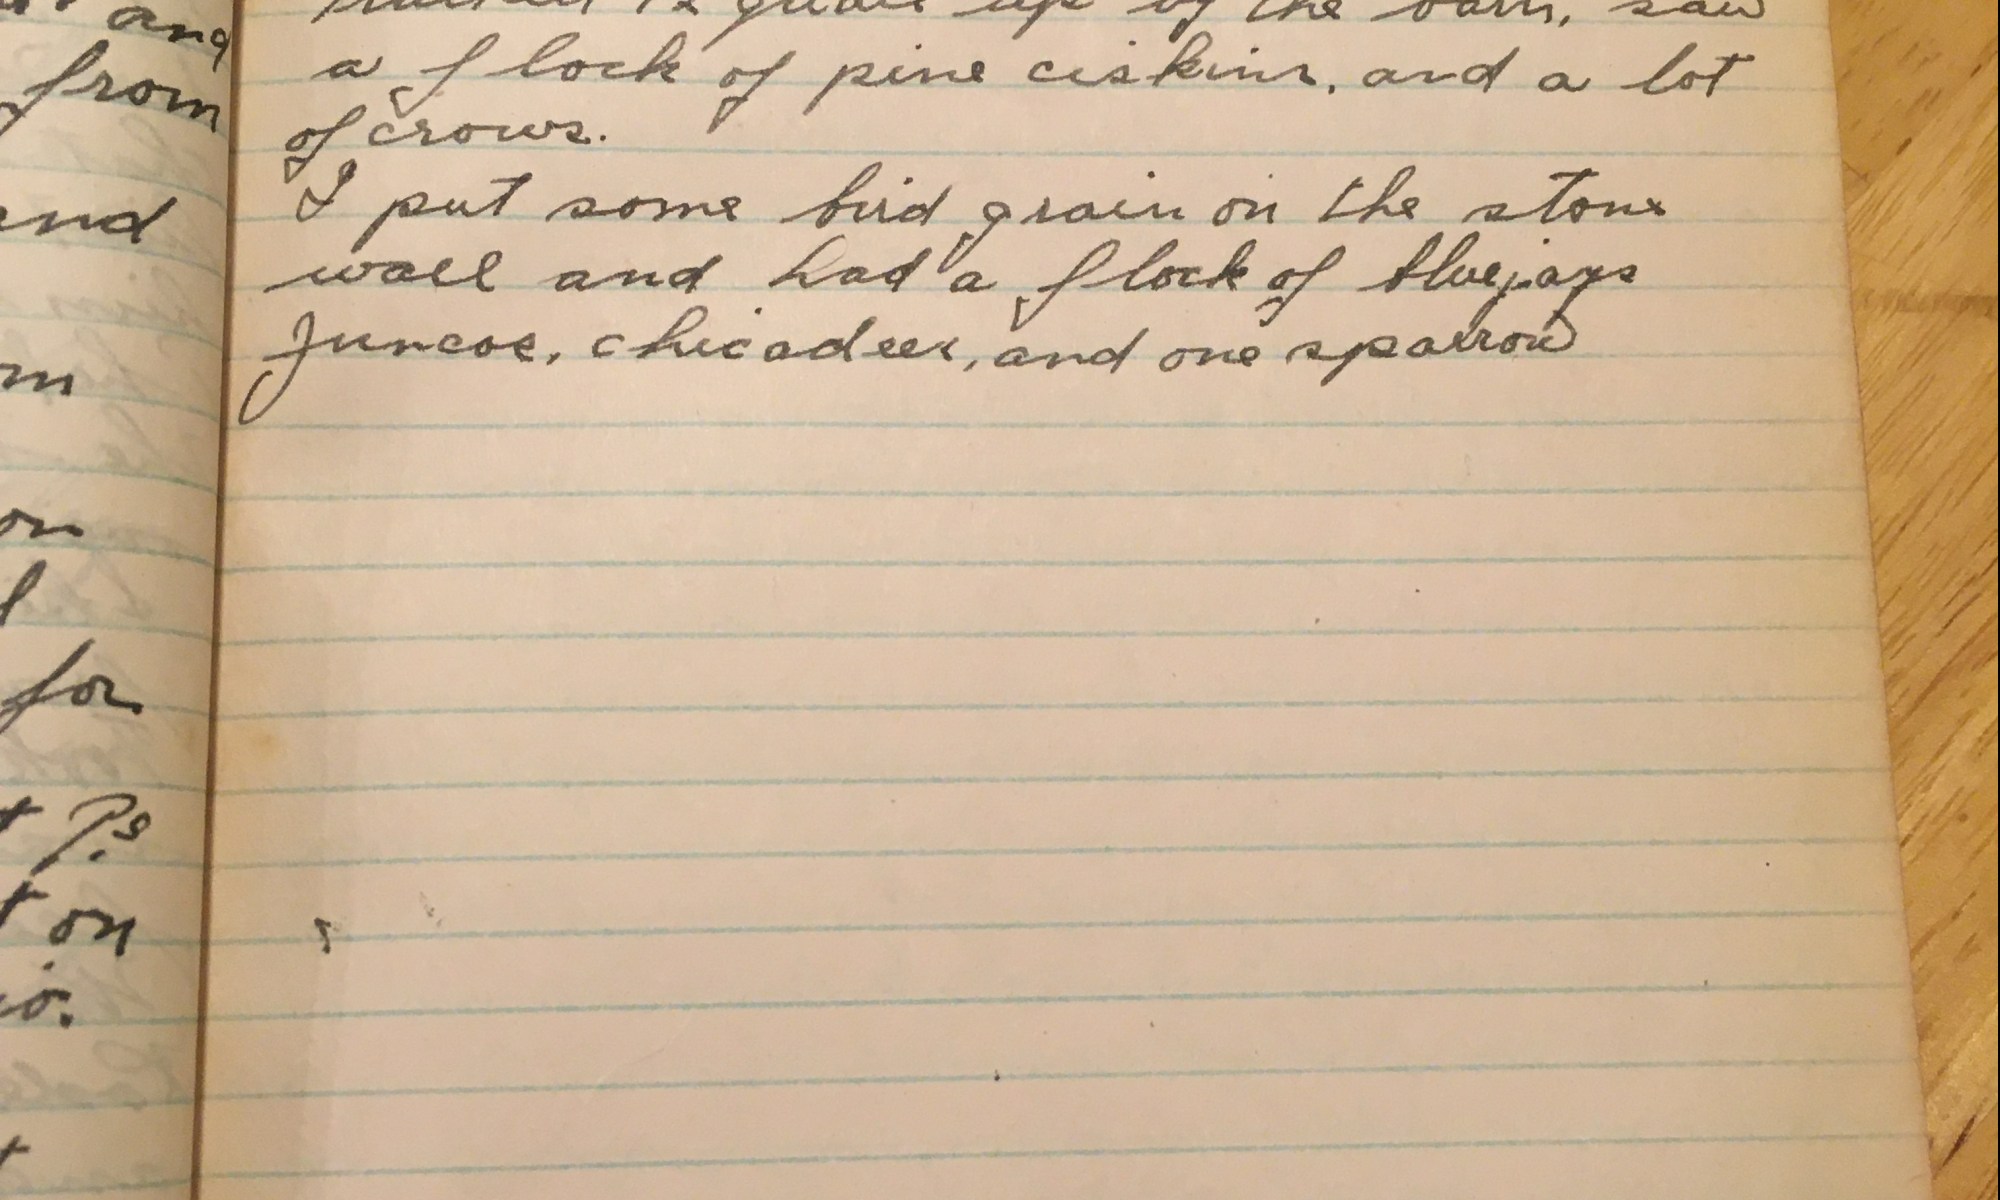 and
from
end
m
on
l
for
t Ps.
t on
io.
t
12 quail up by the barn, saw
a flock of pine ciskins, and a lot
of crows.
I put some bird grain on the stone
wall and had a flock of bluejays
Juncoe, chicadees, and one sparrow